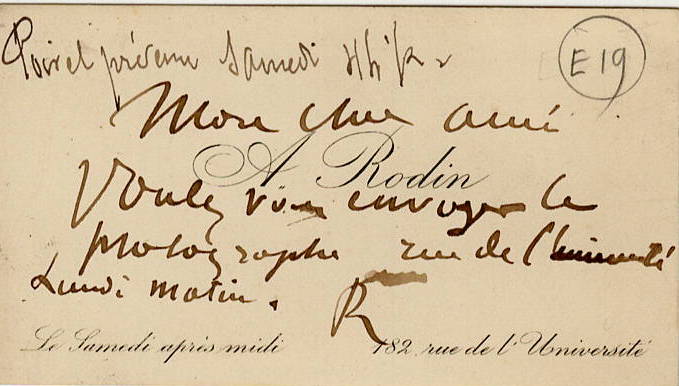 Poivet prévenu Samedi
E 19
Mon cher ami
A. Rodin
Voulez vous envoyer le
photographe rue de l'Université
Lundi matin.
R
Le Samedi après midi
182, rue de l'Université